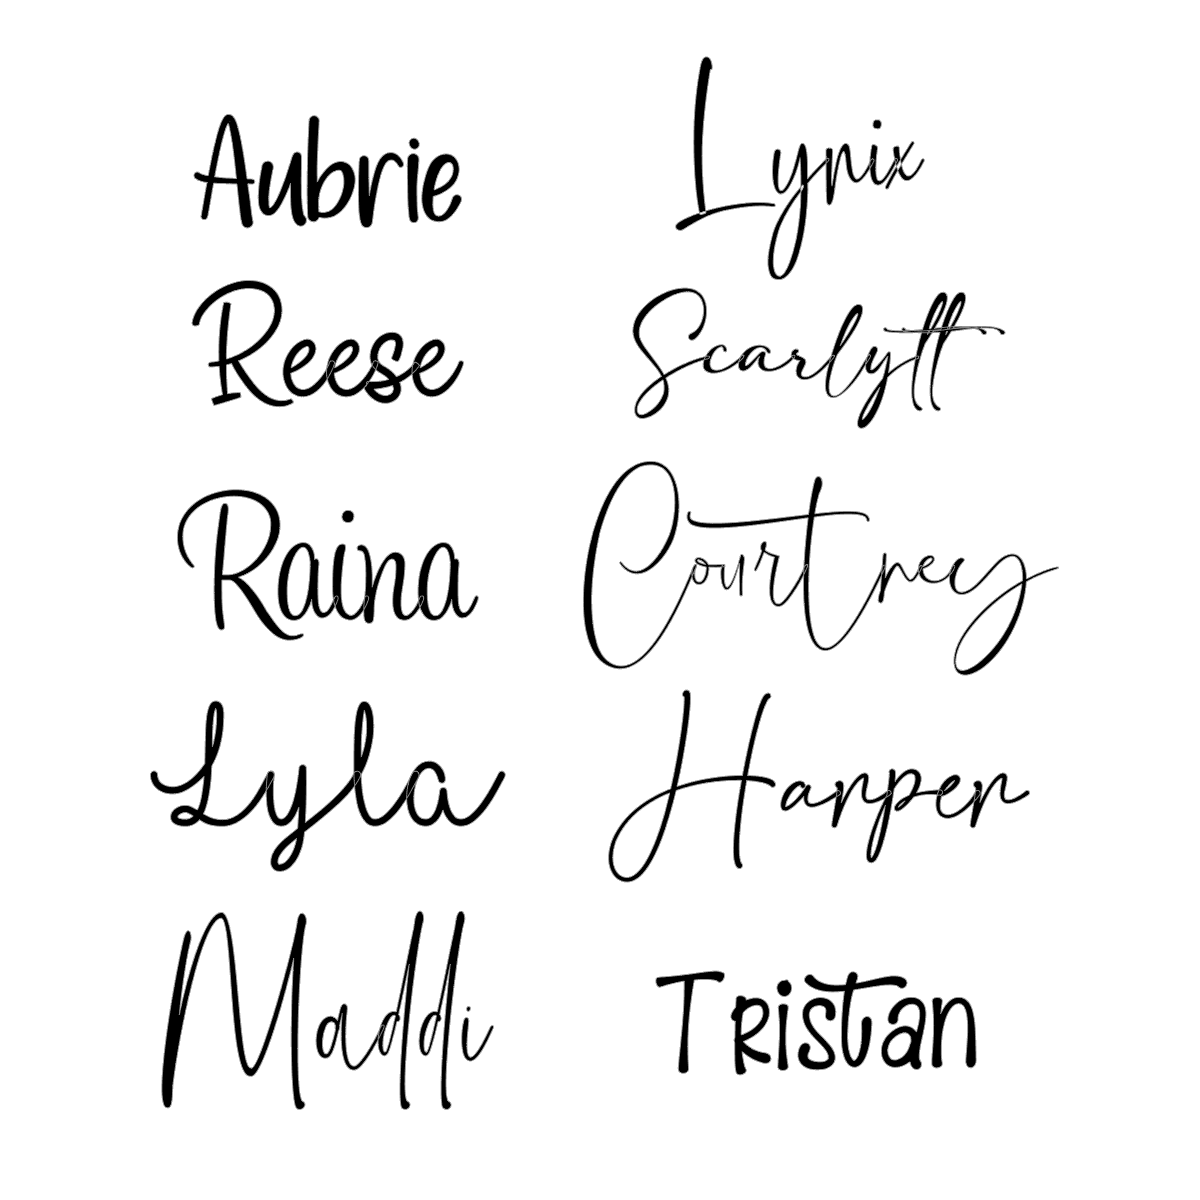 Aubrie
Lynix
Reese
Scarlytt
Raina
Courtney
Lyla
Harper
Maddi
Tristan